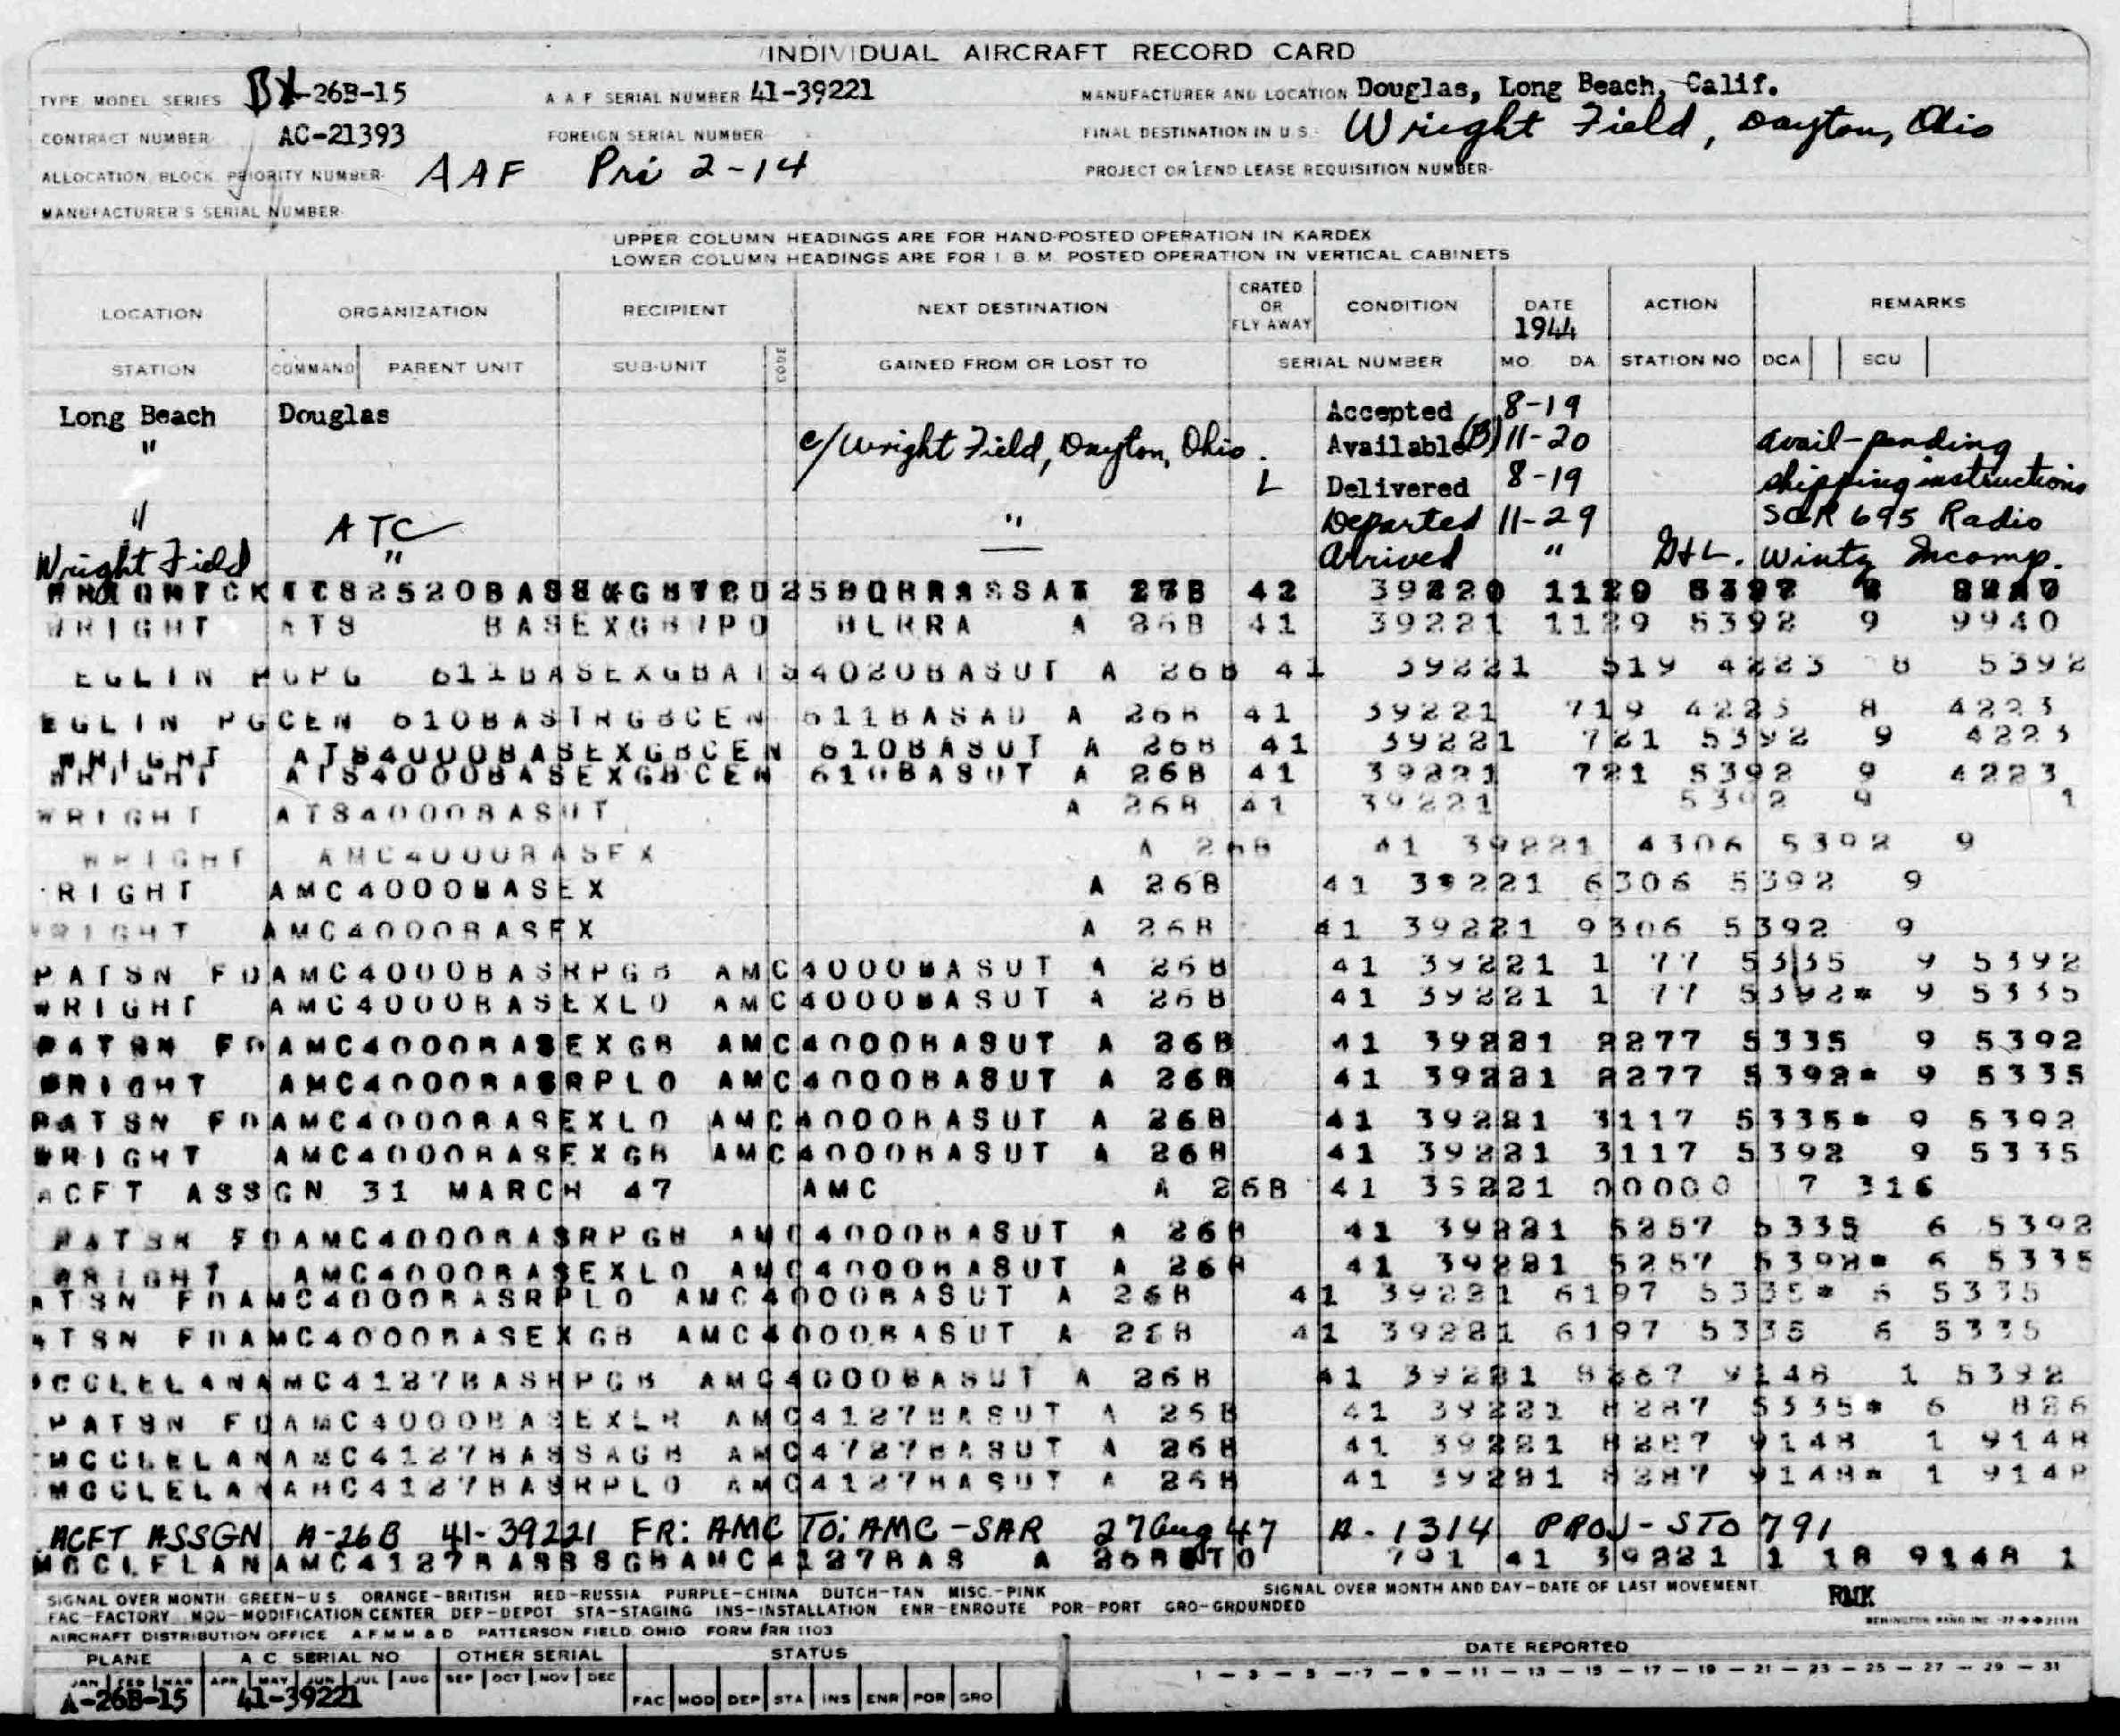 INDIVIDUAL AIRCRAFT RECORD CARD
TYPE MODEL SERIES -26B-15 A A F SERIAL NUMBER 41-39221 MANUFACTURER AND LOCATION Douglas, Long Beach, Calif.
CONTRACT NUMBER AC-21393 FOREIGN SERIAL NUMBER FINAL DESTINATION IN U.S. Wright Field, Dayton, Ohio
ALLOCATION, BLOCK, PRIORITY NUMBER AAF Pri 2-14 PROJECT OR LEND LEASE REQUISITION NUMBER
MANUFACTURER'S SERIAL NUMBER
UPPER COLUMN HEADINGS ARE FOR HAND-POSTED OPERATION IN KARDEX
LOWER COLUMN HEADINGS ARE FOR I. B. M. POSTED OPERATION IN VERTICAL CABINETS
LOCATION ORGANIZATION RECIPIENT NEXT DESTINATION CRATED OR FLY AWAY CONDITION DATE 1944 ACTION REMARKS
STATION COMMAND PARENT UNIT SUB-UNIT CODE GAINED FROM OR LOST TO SERIAL NUMBER MO. DA. STATION NO DCA SCU
Long Beach Douglas Accepted 8-19
" c/Wright Field, Dayton, Ohio. Available (B) 11-20 avail-pending
L Delivered 8-19 shipping instructions
" ATC " Departed 11-29 SCR 695 Radio
Wright Field " — Arrived " Wintz Incomp.
WRIGHT ATS BASEXGB BLRRA A 26B 41 39221 1129 5392 9 9940
EGLIN PGPG 611BASEXGBATS4020BASUT A 26B 41 39221 519 4223 8 5392
EGLIN PGCEN 610BASTRGBCEN 611BASAD A 26B 41 39221 719 4223 8 4223
WRIGHT ATS4000BASEXGBCEN 610BASUT A 26B 41 39221 721 5392 9 4223
WRIGHT ATS4000BASEXGBCEN 610BASUT A 26B 41 39221 721 5392 9 4223
WRIGHT ATS4000BASUT A 26B 41 39221 5392 9 1
WRIGHT AMC4000BASEX A 26B 41 39221 4306 5392 9
RIGHT AMC4000BASEX A 26B 41 39221 6306 5392 9
WRIGHT AMC4000BASEX A 26B 41 39221 9306 5392 9
PATSN FDAMC4000BASRPGB AMC4000BASUT A 26B 41 39221 1 77 5335 9 5392
WRIGHT AMC4000BASEXLO AMC4000BASUT A 26B 41 39221 1 77 5392* 9 5335
PATSN FDAMC4000BASEXGB AMC4000BASUT A 26B 41 39221 2277 5335 9 5392
WRIGHT AMC4000BASRPLO AMC4000BASUT A 26B 41 39221 2277 5392* 9 5335
PATSN FDAMC4000BASEXLO AMC4000BASUT A 26B 41 39221 3117 5335* 9 5392
WRIGHT AMC4000BASEXGB AMC4000BASUT A 26B 41 39221 3117 5392 9 5335
ACFT ASSGN 31 MARCH 47 AMC A 26B 41 39221 00000 7 316
PATSN FDAMC4000BASRPGB AMC4000BASUT A 26B 41 39221 5257 5335 6 5392
WRIGHT AMC4000BASEXLO AMC4000BASUT A 26B 41 39221 5257 5392* 6 5335
ATSN FDAMC4000BASRPLO AMC4000BASUT A 26B 41 39221 6197 5335* 6 5335
ATSN FDAMC4000BASEXGB AMC4000BASUT A 26B 41 39221 6197 5335 6 5335
CCLELANAMC4127BASRPGB AMC4000BASUT A 26B 41 39221 9148 1 5392
PATSN FDAMC4000BASEXLR AMC4127BASUT A 26B 41 39221 8287 5335* 6 826
MCCLELANAMC4127BASSAGB AMC4727BASUT A 26B 41 39221 8287 9148 1 9148
MCCLELANAMC4127BASRPLO AMC4127BASUT A 26B 41 39221 8287 9148* 1 9148
ACFT ASSGN A-26B 41-39221 FR: AMC TO: AMC-SAR 27 Aug 47 A-1314 PROJ-STO 791
MCCLELANAMC4127BASSSGBAMC4127BAS A 26B STO 791 41 39221 1 18 9148 1
SIGNAL OVER MONTH GREEN-U S ORANGE-BRITISH RED-RUSSIA PURPLE-CHINA DUTCH-TAN MISC.-PINK SIGNAL OVER MONTH AND DAY-DATE OF LAST MOVEMENT RMK
FAC-FACTORY MOD-MODIFICATION CENTER DEP-DEPOT STA-STAGING INS-INSTALLATION ENR-ENROUTE POR-PORT GRO-GROUNDED
AIRCRAFT DISTRIBUTION OFFICE A.F.M M & D PATTERSON FIELD, OHIO FORM FRR 1103 REMINGTON RAND INC.
PLANE A C SERIAL NO OTHER SERIAL STATUS DATE REPORTED
JAN FEB MAR APR MAY JUN JUL AUG SEP OCT NOV DEC 1 — 3 — 5 — 7 — 9 — 11 — 13 — 15 — 17 — 19 — 21 — 23 — 25 — 27 — 29 — 31
A-26B-15 41-39221 FAC MOD DEP STA INS ENR POR GRO